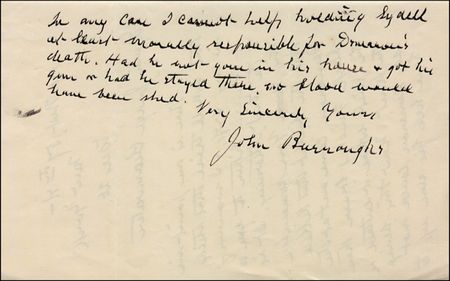 In any case I cannot help holding Lydell
at least morally responsible for Donovan's
death. Had he not gone in his house & got his
gun or had he stayed there, no blood would
have been shed.
Very Sincerely Yours,
John Burroughs